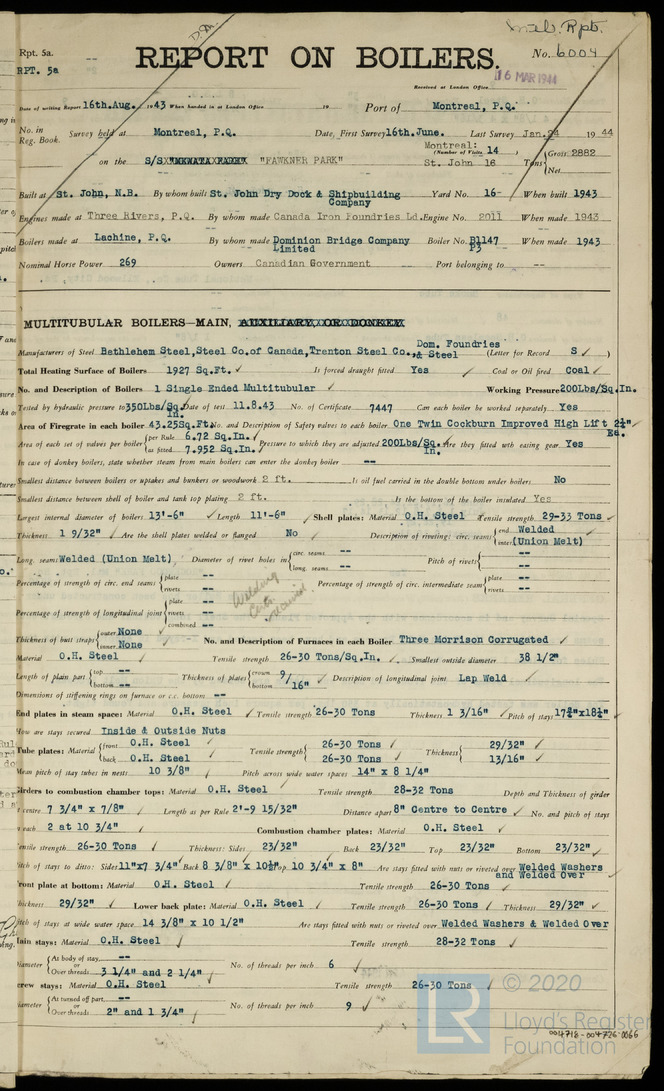 D.M.
Mab. Rpt.
Rpt. 5a.
RPT. 5a
REPORT ON BOILERS.
No. 6004
16 MAR 1944
Received at London Office
Date of writing Report 16th.Aug. 1943 When handed in at London Office 19 Port of Montreal, P.Q.
No. in Reg. Book. Survey held at Montreal, P.Q. Date, First Survey 16th.June. Last Survey Jan.24 1944
Montreal: (Number of Visits 14
on the S/S "FAWKNER PARK" St. John 16 Tons {Gross 2882
Net
Built at St. John, N.B. By whom built St. John Dry Dock & Shipbuilding Company Yard No. 16- When built 1943
Engines made at Three Rivers, P.Q. By whom made Canada Iron Foundries Ld. Engine No. 2011 When made 1943
Boilers made at Lachine, P.Q. By whom made Dominion Bridge Company Limited Boiler No. B1147 P3 When made 1943
Nominal Horse Power 269 Owners Canadian Government Port belonging to --
MULTITUBULAR BOILERS—MAIN, AUXILIARY, OR DONKEY
Manufacturers of Steel Bethlehem Steel, Steel Co. of Canada, Trenton Steel Co., Dom. Foundries & Steel (Letter for Record S )
Total Heating Surface of Boilers 1927 Sq.Ft. Is forced draught fitted Yes Coal or Oil fired Coal
No. and Description of Boilers 1 Single Ended Multitubular Working Pressure 200Lbs/Sq.In.
Tested by hydraulic pressure to 350Lbs/Sq.In. Date of test 11.8.43 No. of Certificate 7447 Can each boiler be worked separately Yes
Area of Firegrate in each boiler 43.25Sq.Ft. No. and Description of Safety valves to each boiler One Twin Cockburn Improved High Lift 2½" Ea.
Area of each set of valves per boiler {per Rule 6.72 Sq.In. as fitted 7.952 Sq.In. Pressure to which they are adjusted 200Lbs/Sq.In. Are they fitted with easing gear Yes
In case of donkey boilers, state whether steam from main boilers can enter the donkey boiler --
Smallest distance between boilers or uptakes and bunkers or woodwork 2 ft. Is oil fuel carried in the double bottom under boilers No
Smallest distance between shell of boiler and tank top plating 2 ft. Is the bottom of the boiler insulated Yes
Largest internal diameter of boilers 13'-6" Length 11'-6" Shell plates: Material O.H. Steel Tensile strength 29-33 Tons
Thickness 1 9/32" Are the shell plates welded or flanged No Description of riveting: circ. seams {end Welded inter. (Union Melt)
Long. seams Welded (Union Melt) Diameter of rivet holes in {circ. seams -- long. seams -- Pitch of rivets { -- --
Percentage of strength of circ. end seams {plate -- rivets -- Percentage of strength of circ. intermediate seam {plate -- rivets --
Welding Certs. received
Percentage of strength of longitudinal joint {plate -- rivets -- combined --
Thickness of butt straps {outer None inner None No. and Description of Furnaces in each Boiler Three Morrison Corrugated
Material O.H. Steel Tensile strength 26-30 Tons/Sq.In. Smallest outside diameter 38 1/2"
Length of plain part {top -- bottom -- Thickness of plates {crown bottom 9/16" Description of longitudinal joint Lap Weld
Dimensions of stiffening rings on furnace or c.c. bottom --
End plates in steam space: Material O.H. Steel Tensile strength 26-30 Tons Thickness 1 3/16" Pitch of stays 17¾"x18½"
How are stays secured Inside & Outside Nuts
Tube plates: Material {front O.H. Steel back O.H. Steel Tensile strength { 26-30 Tons 26-30 Tons Thickness { 29/32" 13/16"
Mean pitch of stay tubes in nests 10 3/8" Pitch across wide water spaces 14" x 8 1/4"
Girders to combustion chamber tops: Material O.H. Steel Tensile strength 28-32 Tons Depth and Thickness of girder
centre 7 3/4" x 7/8" Length as per Rule 2'-9 15/32" Distance apart 8" Centre to Centre No. and pitch of stays
each 2 at 10 3/4" Combustion chamber plates: Material O.H. Steel
Tensile strength 26-30 Tons Thickness: Sides 23/32" Back 23/32" Top 23/32" Bottom 23/32"
Pitch of stays to ditto: Sides 11"x7 3/4" Back 8 3/8" x 10½" Top 10 3/4" x 8" Are stays fitted with nuts or riveted over Welded Washers and Welded Over
Front plate at bottom: Material O.H. Steel Tensile strength 26-30 Tons
Thickness 29/32" Lower back plate: Material O.H. Steel Tensile strength 26-30 Tons Thickness 29/32"
Pitch of stays at wide water space 14 3/8" x 10 1/2" Are stays fitted with nuts or riveted over Welded Washers & Welded Over
Main stays: Material O.H. Steel Tensile strength 28-32 Tons
Diameter {At body of stay, -- or Over threads 3 1/4" and 2 1/4" No. of threads per inch 6
Screw stays: Material O.H. Steel Tensile strength 26-30 Tons
Diameter {At turned off part, -- or Over threads 2" and 1 3/4" No. of threads per inch 9
LR © 2020 Lloyd's Register Foundation
004718-004726-0066